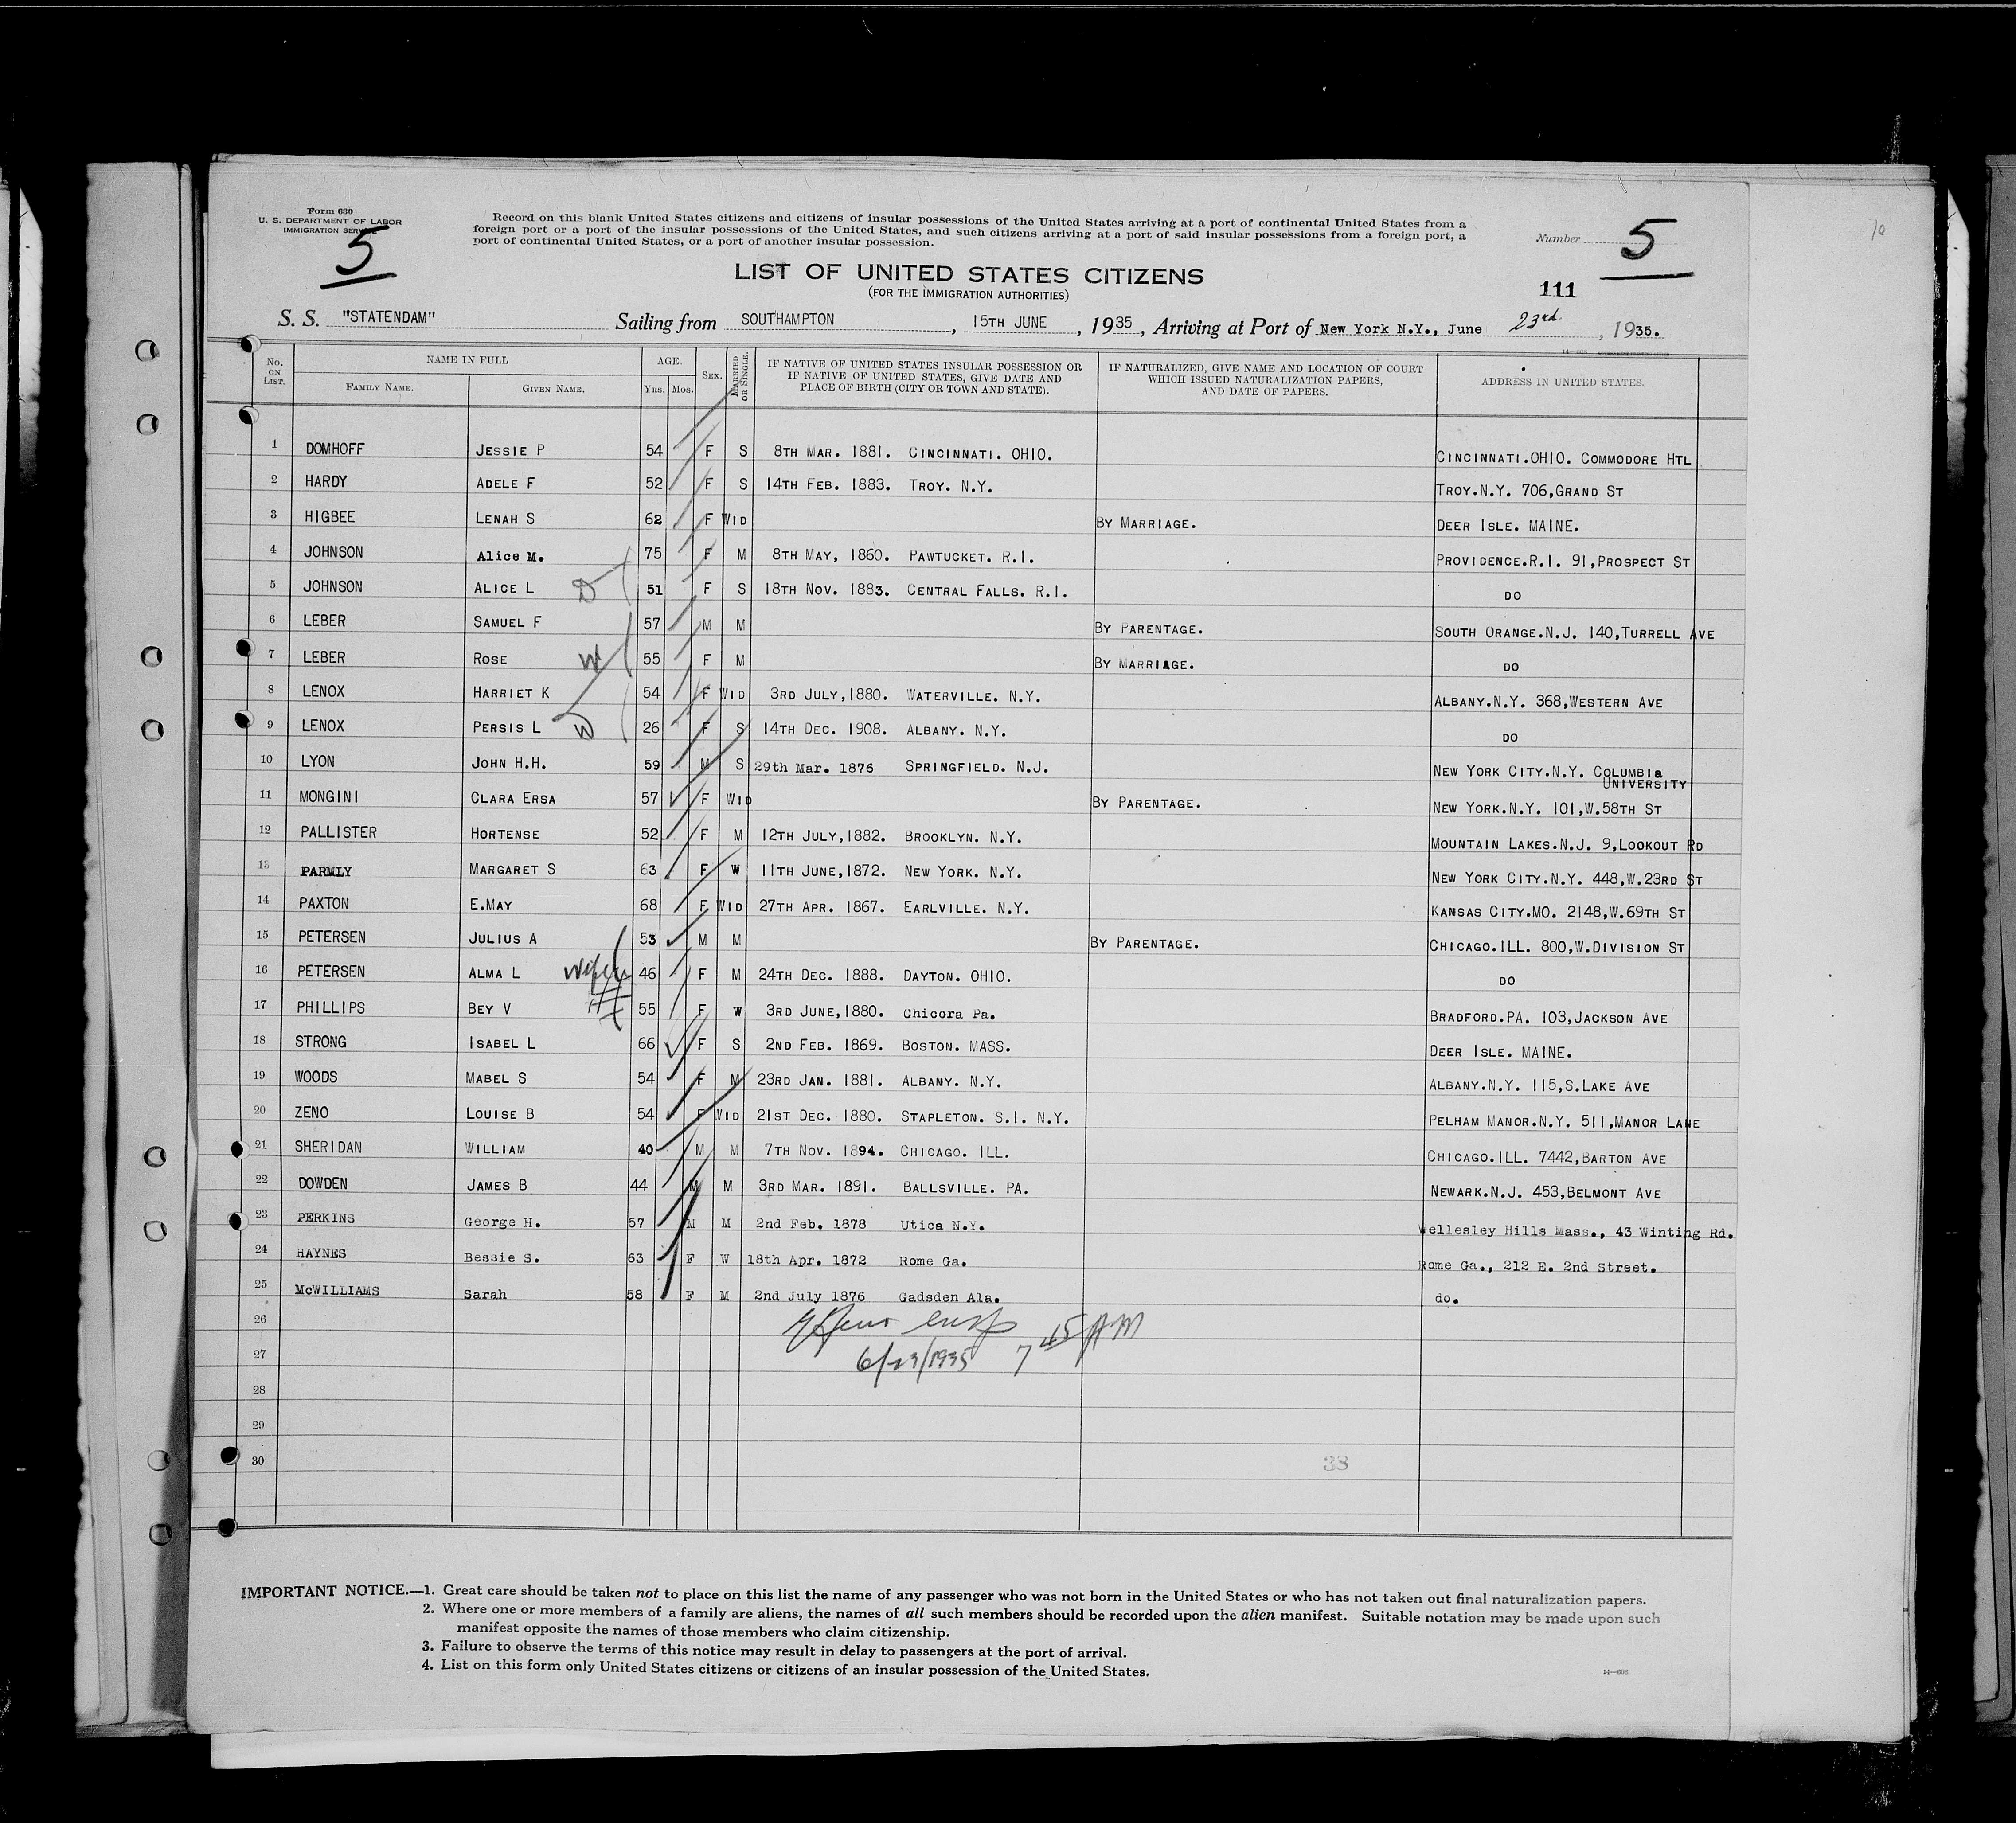 Form 630
U. S. DEPARTMENT OF LABOR
IMMIGRATION SERVICE
5
Record on this blank United States citizens and citizens of insular possessions of the United States arriving at a port of continental United States from a
foreign port or a port of the insular possessions of the United States, and such citizens arriving at a port of said insular possessions from a foreign port, a
port of continental United States, or a port of another insular possession.
Number 5
LIST OF UNITED STATES CITIZENS
(FOR THE IMMIGRATION AUTHORITIES)
111
S. S. "STATENDAM" Sailing from SOUTHAMPTON, 15TH JUNE, 1935, Arriving at Port of New York N.Y., June 23rd, 1935.
No. ON LIST. NAME IN FULL FAMILY NAME. GIVEN NAME. AGE. YRS. MOS. SEX. MARRIED OR SINGLE. IF NATIVE OF UNITED STATES INSULAR POSSESSION OR IF NATIVE OF UNITED STATES, GIVE DATE AND PLACE OF BIRTH (CITY OR TOWN AND STATE). IF NATURALIZED, GIVE NAME AND LOCATION OF COURT WHICH ISSUED NATURALIZATION PAPERS, AND DATE OF PAPERS. ADDRESS IN UNITED STATES.
1 DOMHOFF JESSIE P 54 F S 8TH MAR. 1881. CINCINNATI. OHIO. CINCINNATI.OHIO. COMMODORE HTL
2 HARDY ADELE F 52 F S 14TH FEB. 1883. TROY. N.Y. TROY.N.Y. 706,GRAND ST
3 HIGBEE LENAH S 62 F WID BY MARRIAGE. DEER ISLE. MAINE.
4 JOHNSON Alice M. 75 F M 8TH MAY, 1860. PAWTUCKET. R.I. PROVIDENCE.R.I. 91,PROSPECT ST
5 JOHNSON ALICE L D 51 F S 18TH NOV. 1883. CENTRAL FALLS. R.I. DO
6 LEBER SAMUEL F 57 M M BY PARENTAGE. SOUTH ORANGE.N.J. 140,TURRELL AVE
7 LEBER ROSE W 55 F M BY MARRIAGE. DO
8 LENOX HARRIET K 54 F WID 3RD JULY,1880. WATERVILLE. N.Y. ALBANY.N.Y. 368,WESTERN AVE
9 LENOX PERSIS L W 26 F S 14TH DEC. 1908. ALBANY. N.Y. DO
10 LYON JOHN H.H. 59 M S 29th Mar. 1876 SPRINGFIELD. N.J. NEW YORK CITY.N.Y. COLUMBIA
UNIVERSITY
11 MONGINI CLARA ERSA 57 F WID BY PARENTAGE. NEW YORK.N.Y. 101,W.58TH ST
12 PALLISTER HORTENSE 52 F M 12TH JULY,1882. BROOKLYN. N.Y. MOUNTAIN LAKES.N.J. 9,LOOKOUT RD
13 PARMLY MARGARET S 63 F W 11TH JUNE,1872. NEW YORK. N.Y. NEW YORK CITY.N.Y. 448,W.23RD ST
14 PAXTON E.MAY 68 F WID 27TH APR. 1867. EARLVILLE. N.Y. KANSAS CITY.MO. 2148,W.69TH ST
15 PETERSEN JULIUS A 53 M M BY PARENTAGE. CHICAGO.ILL. 800,W.DIVISION ST
16 PETERSEN ALMA L wife 46 F M 24TH DEC. 1888. DAYTON. OHIO. DO
17 PHILLIPS BEY V 55 F W 3RD JUNE,1880. Chicora Pa. BRADFORD.PA. 103,JACKSON AVE
18 STRONG ISABEL L 66 F S 2ND FEB. 1869. BOSTON. MASS. DEER ISLE. MAINE.
19 WOODS MABEL S 54 F M 23RD JAN. 1881. ALBANY. N.Y. ALBANY.N.Y. 115,S.LAKE AVE
20 ZENO LOUISE B 54 F WID 21ST DEC. 1880. STAPLETON. S.I. N.Y. PELHAM MANOR.N.Y. 511,MANOR LANE
21 SHERIDAN WILLIAM 40 M M 7TH NOV. 1894. CHICAGO. ILL. CHICAGO.ILL. 7442,BARTON AVE
22 DOWDEN JAMES B 44 M M 3RD MAR. 1891. BALLSVILLE. PA. NEWARK.N.J. 453,BELMONT AVE
23 PERKINS George H. 57 M M 2nd Feb. 1878 Utica N.Y. Wellesley Hills Mass., 43 Winting Rd.
24 HAYNES Bessie S. 63 F W 18th Apr. 1872 Rome Ga. Rome Ga., 212 E. 2nd Street.
25 McWILLIAMS Sarah 58 F M 2nd July 1876 Gadsden Ala. do.
26
27 6/23/1935 7 45 AM
28
29
30
38
IMPORTANT NOTICE.—1. Great care should be taken not to place on this list the name of any passenger who was not born in the United States or who has not taken out final naturalization papers.
2. Where one or more members of a family are aliens, the names of all such members should be recorded upon the alien manifest. Suitable notation may be made upon such
manifest opposite the names of those members who claim citizenship.
3. Failure to observe the terms of this notice may result in delay to passengers at the port of arrival.
4. List on this form only United States citizens or citizens of an insular possession of the United States.